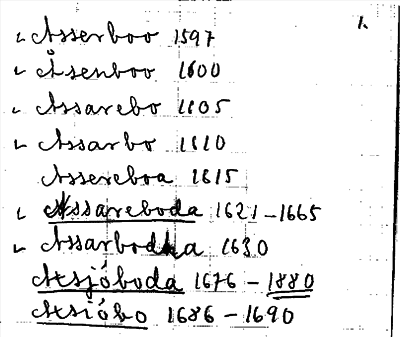 1.
Asserboo 1597
Åsenboo 1600
Assarebo 1605
Assarbo 1610
Assereboa 1615
Assareboda 1621-1665
Assarbodha 1630
Assjóboda 1676-1880
Assióbo 1686-1690